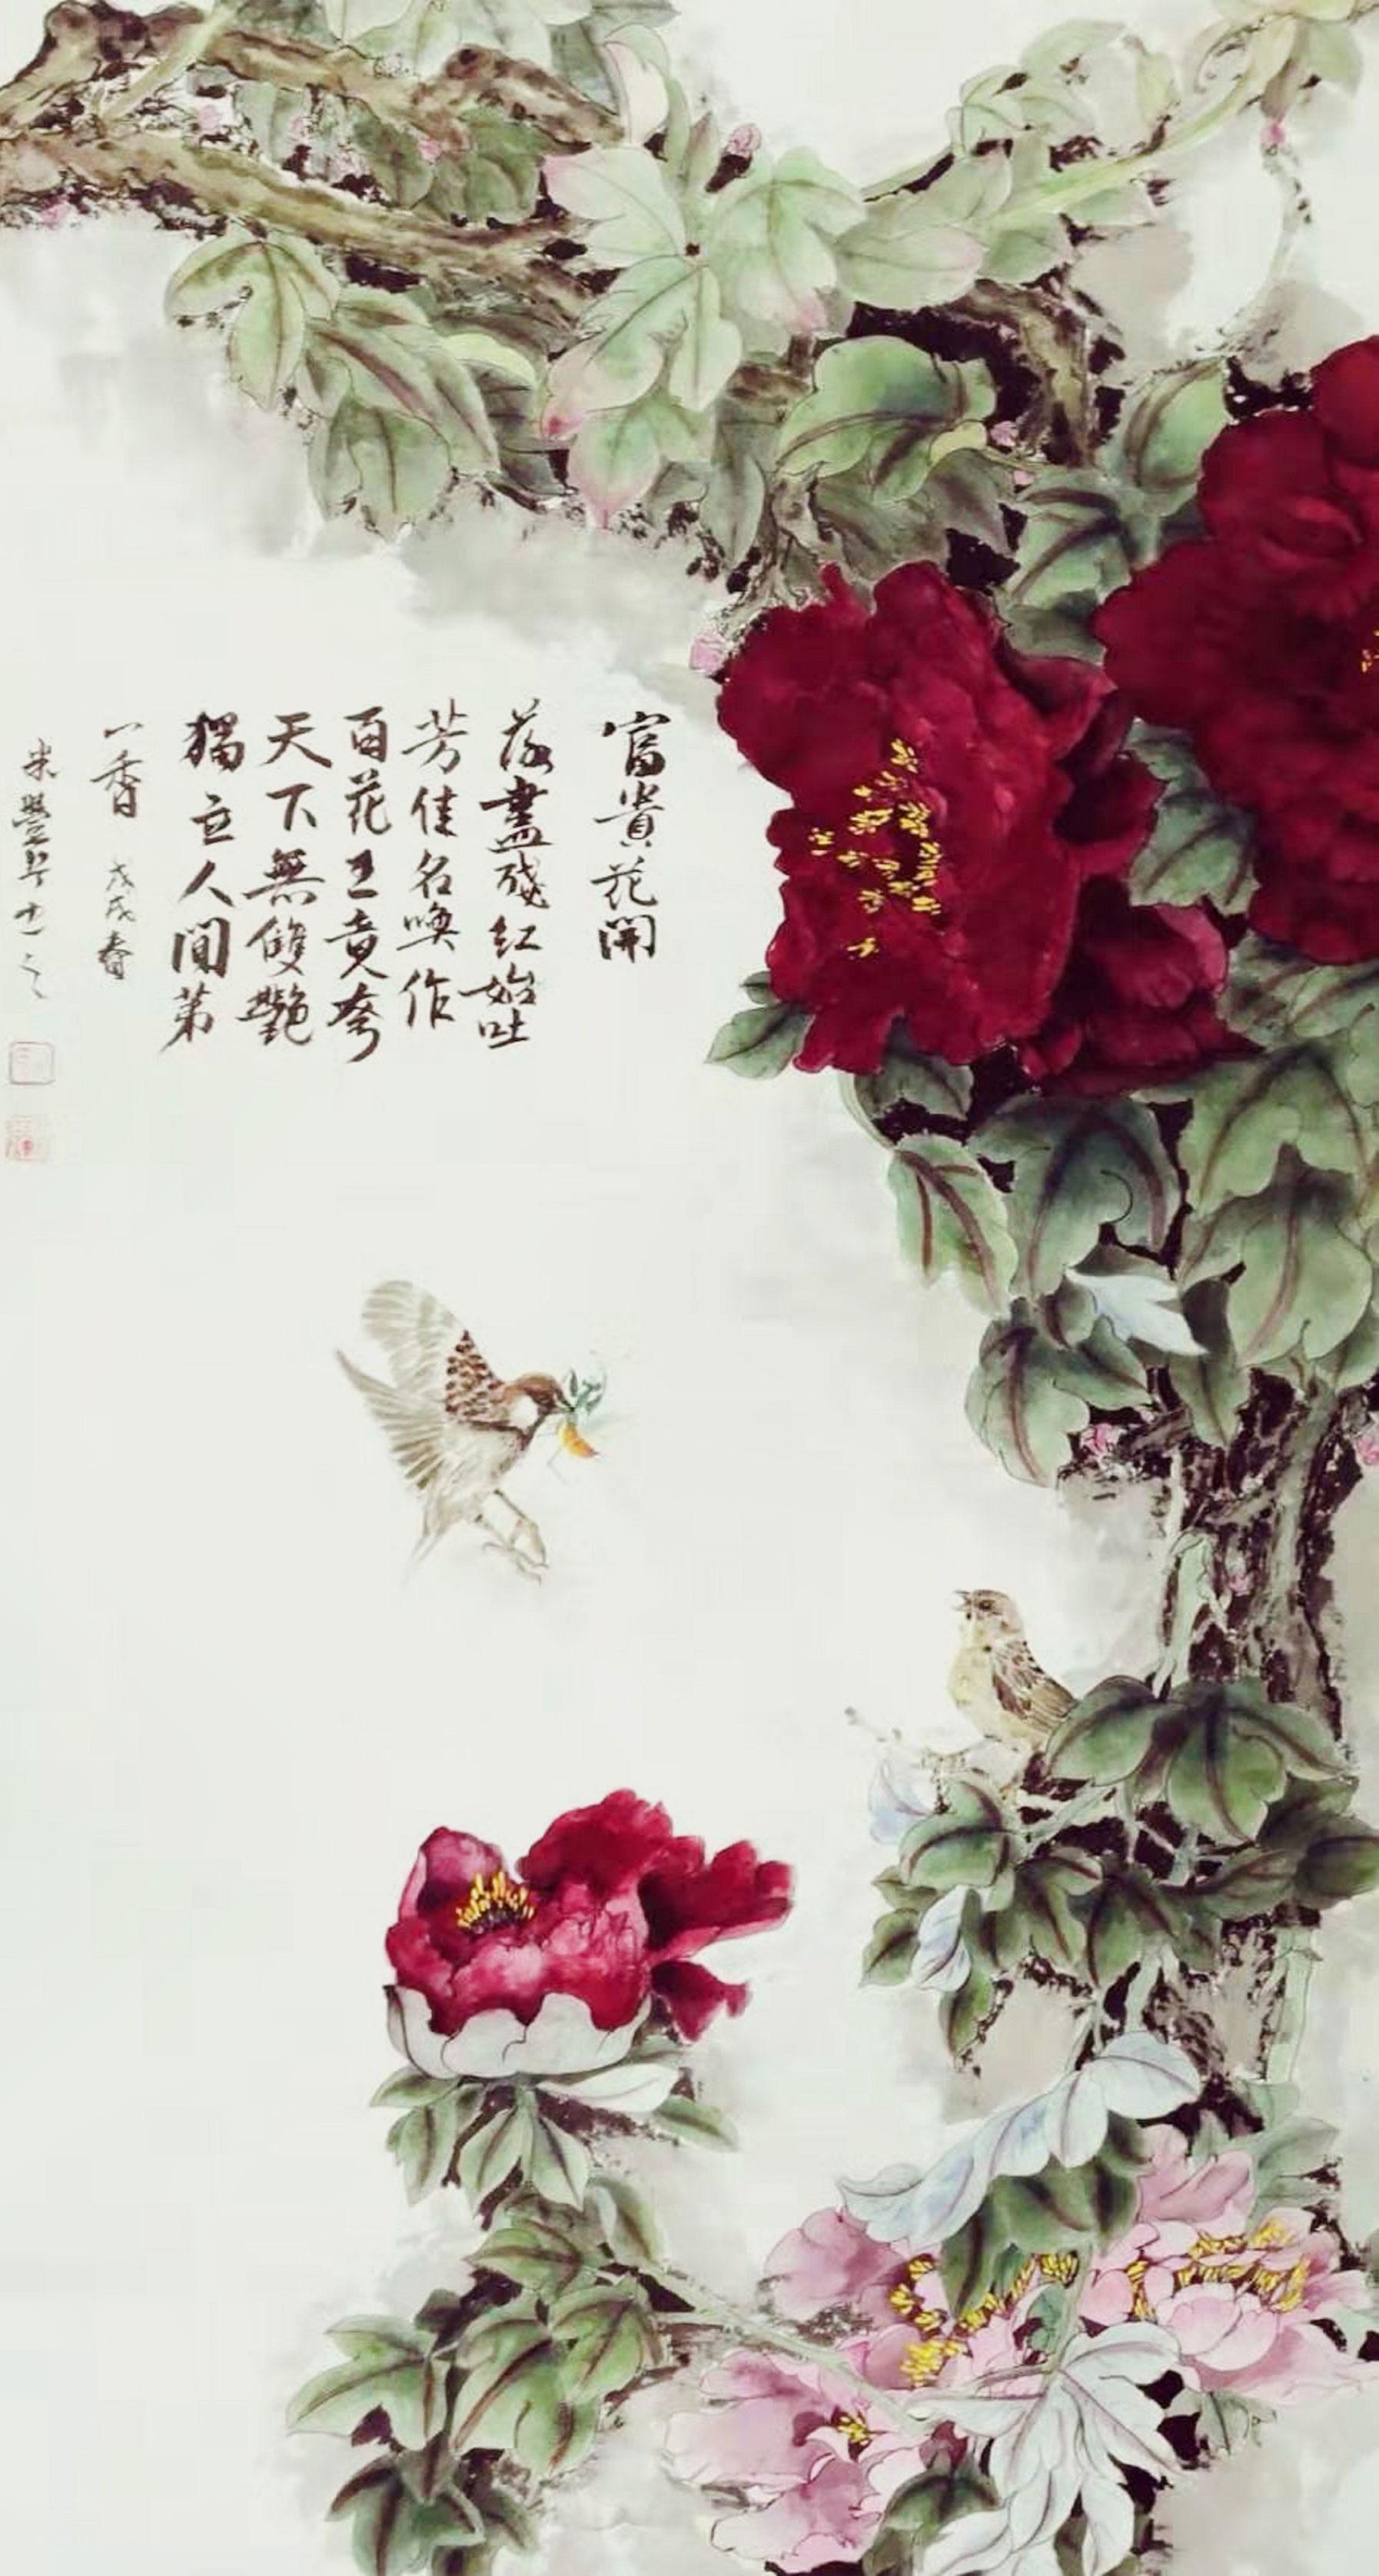 富貴花開
落盡殘紅始吐
芳佳名喚作
百花王竟夸
天下無雙艷
獨立人間第
一香 戊戌春